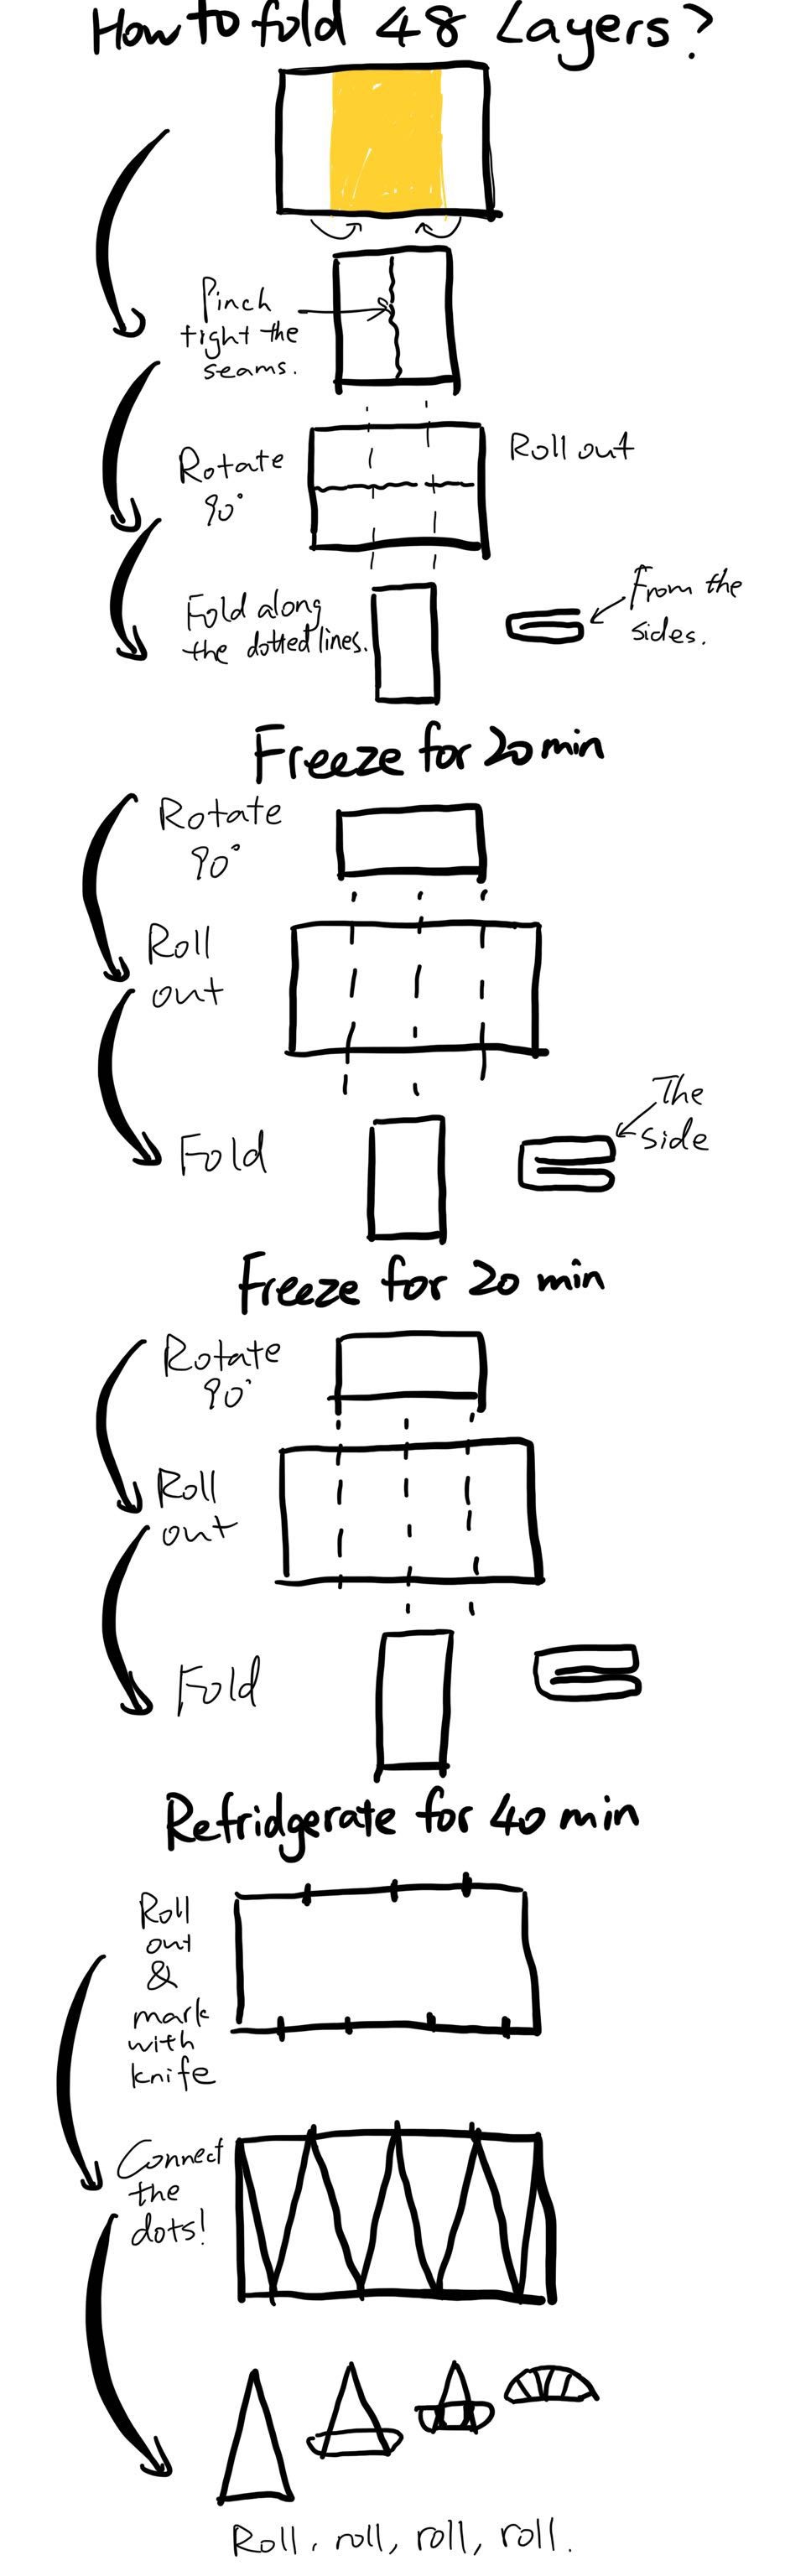 How to fold 48 Layers?
Pinch
tight the
seams.
Rotate
90°
Roll out
Fold along
the dotted lines.
From the
sides.
Freeze for 20 min
Rotate
90°
Roll
out
Fold
The
side
Freeze for 20 min
Rotate
90°
Roll
out
Fold
Refridgerate for 40 min
Roll
out
&
mark
with
knife
Connect
the
dots!
Roll, roll, roll, roll.